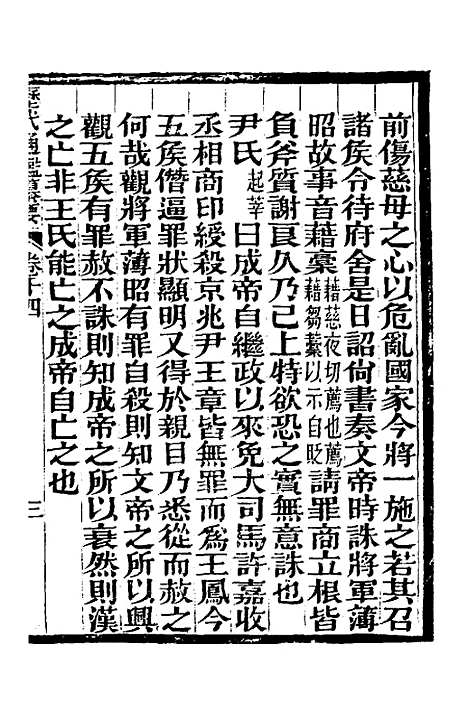 前傷慈母之心以危亂國家今將一施之若其召
諸矦令待府舍是日詔尙書奏文帝時誅將軍薄
昭故事音藉稾藉慈夜切薦也薦藉芻藁以示自貶請罪商立根皆
負斧質謝良久乃已上特欲恐之實無意誅也
尹氏起莘曰成帝自繼政以來免大司馬許嘉收
丞相商印綬殺京兆尹王章皆無罪而爲王鳳今
五矦僭逼罪狀顯明又得於親目乃悉從而赦之
何哉觀將軍薄昭有罪自殺則知文帝之所以興
觀五矦有罪赦不誅則知成帝之所以衰然則漢
之亡非王氏能亡之成帝自亡之也
通鑑 卷十四 三